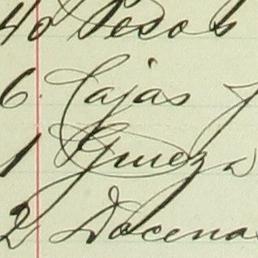 40 Pesos
6. Cajas
1
2 Docena